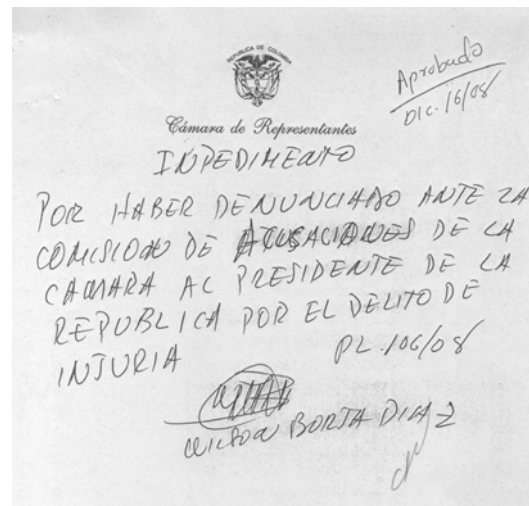 REPUBLICA DE COLOMBIA
Aprobado
DIC. 16/08
Cámara de Representantes
IMPEDIMENTO
POR HABER DENUNCIADO ANTE LA
COMISION DE ACUSACIONES DE LA
CAMARA AL PRESIDENTE DE LA
REPUBLICA POR EL DELITO DE
INJURIA
PL. 106/08
WILSON BORJA DIAZ